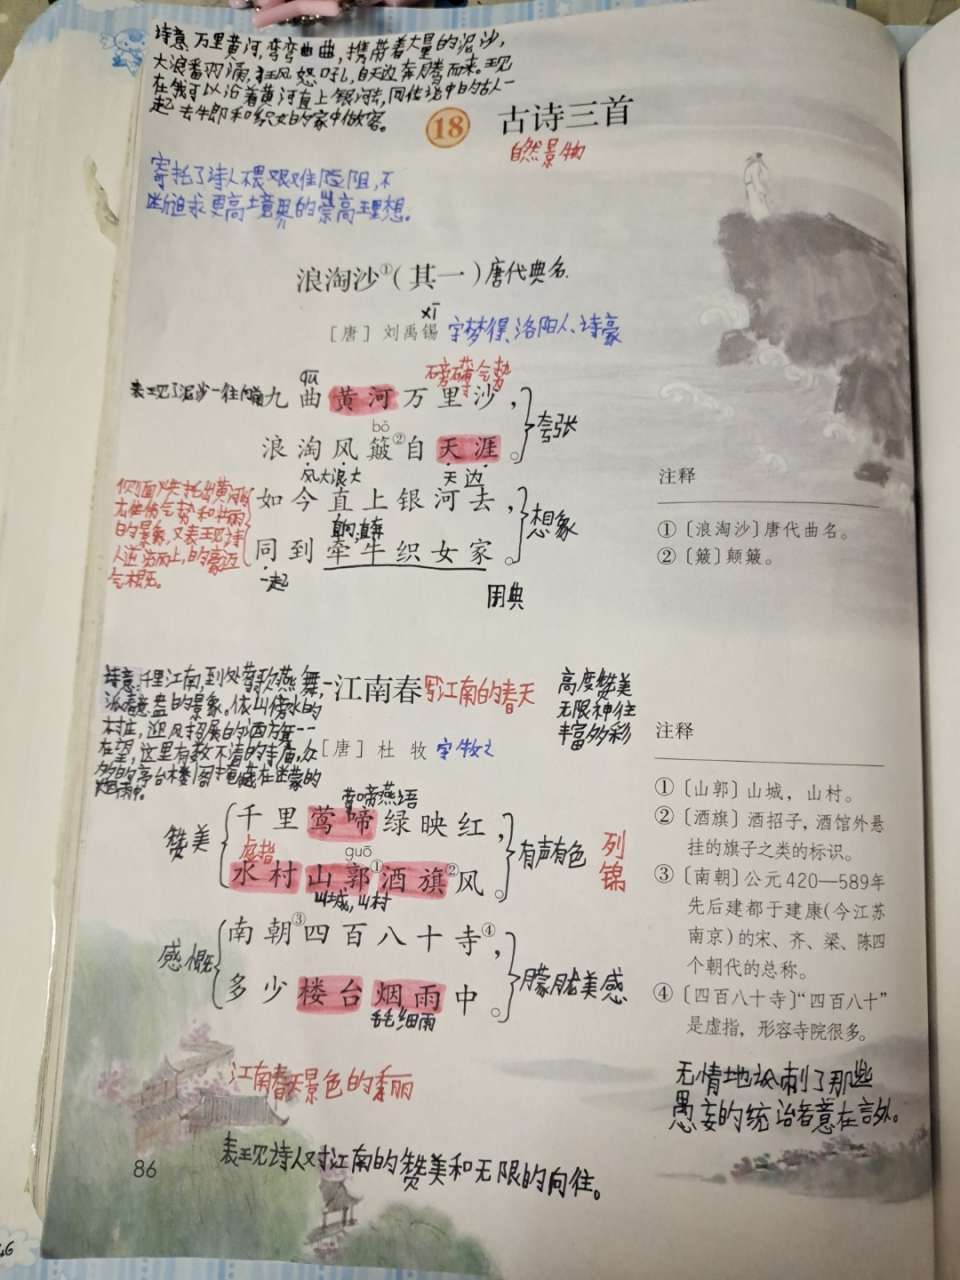 诗意:万里黄河,弯弯曲曲,携带着大量的泥沙,
大浪番羽涌,狂风怒吼,自天边奔腾而来。现
在我可以沿着黄河直上银河去,同传说中的古人一
起去牛郎和织女的家中做客。
18 古诗三首
自然景物
寄托了诗人不畏艰难险阻,不
断追求更高境界的崇高理想。
浪淘沙①(其一)唐代典名.
xī
[唐] 刘禹锡 字梦得,洛阳人、诗豪
表现了泥沙一往内前
qū
磅礴气势
九曲黄河万里沙,
夸张
bǒ
浪淘风簸②自天涯。
风大浪大 天边
侧面烘托出黄河的
雄伟气势和壮丽
的景象,又表现诗
人逆流而上,的豪迈
气概。
如今直上银河去,
想象
同到牵牛织女家。
一起
用典
注释
①〔浪淘沙〕唐代曲名。
②〔簸〕颠簸。
诗意:千里江南,到处莺歌燕舞,一
派春意盎的景象。依山傍水的
村庄,迎风招展的酒方旗一一
在望,这里有数不清的寺庙,众
多的亭台楼阁掩藏在迷蒙的
烟雨中。
江南春 写江南的春天
高度赞美
无限神往
丰富多彩
[唐] 杜牧 字牧之
莺啼燕语
赞美
千里莺啼绿映红,
有声有色
列锦
虚指
guō
水村山郭①酒旗②风。
山城,山村
感慨
南朝③四百八十寺④,
朦胧美感
多少楼台烟雨中。
毛毛细雨
注释
①〔山郭〕山城,山村。
②〔酒旗〕酒招子,酒馆外悬
挂的旗子之类的标识。
③〔南朝〕公元420—589年
先后建都于建康(今江苏
南京)的宋、齐、梁、陈四
个朝代的总称。
④〔四百八十寺〕“四百八十”
是虚指,形容寺院很多。
江南春天景色的秀丽
无情地讽刺了那些
愚妄的统治者意在言外。
表现诗人对江南的赞美和无限的向往。
86